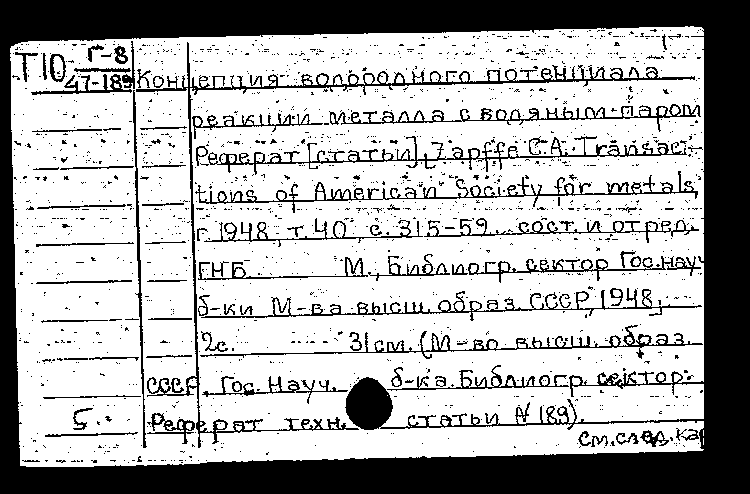 Т10 Г-8
47-189 Концепция водородного потенциала
реакции металла с водяным паром
Реферат [статьи], Zapffe C.A. Transac-
tions of American Society for metals,
г. 1948, т. 40, с. 315-59. сост. и отред.
ГНБ М., Библиогр. сектор Гос. науч
б-ки М-ва высш. образ. СССР, 1948,
2с. 31см. (М-во высш. образ.
СССР. Гос. Науч. б-ка. Библиогр. сектор.
5. Реферат техн. статьи № 189).
См. след. кар